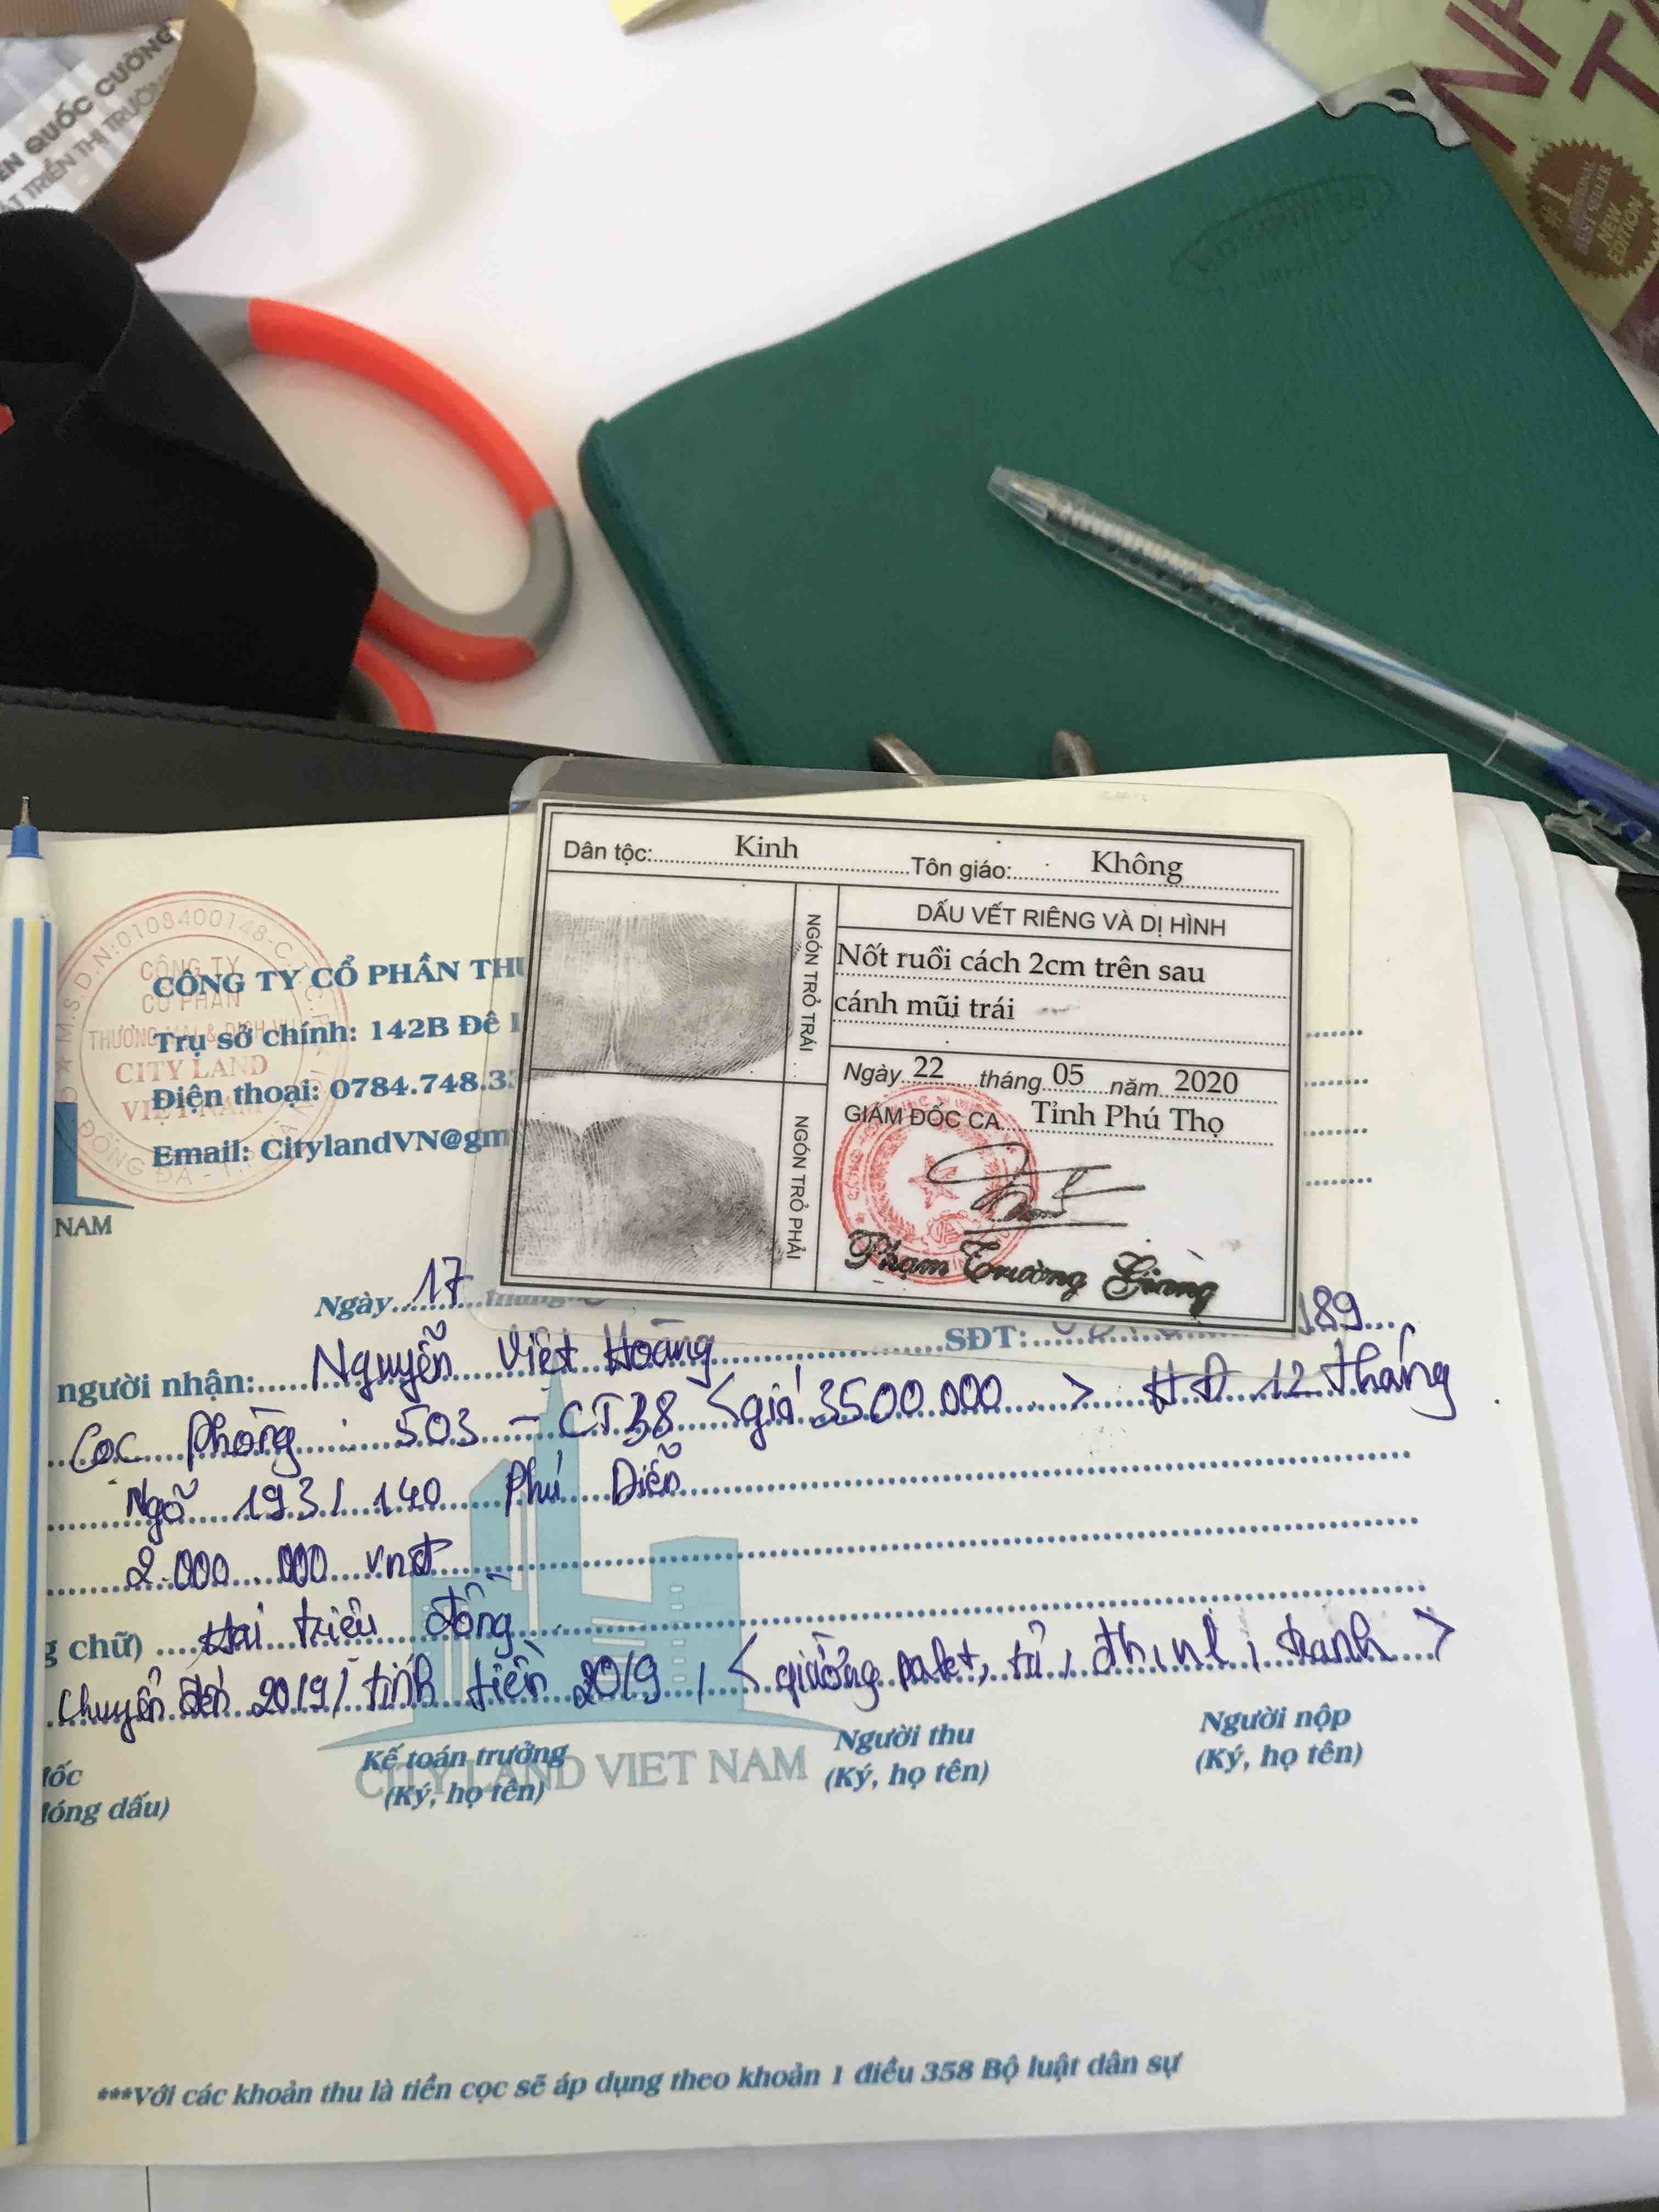 QUỐC CƯỜNG
TRIỂN THỊ TRƯỜNG
#1
BEST SELLER
NEW
EDITION
Dân tộc: Kinh Tôn giáo: Không
NGÓN TRỎ TRÁI
DẤU VẾT RIÊNG VÀ DỊ HÌNH
Nốt ruồi cách 2cm trên sau
cánh mũi trái
Ngày 22 tháng 05 năm 2020
GIÁM ĐỐC CA Tỉnh Phú Thọ
NGÓN TRỎ PHẢI
Phạm Trường Giang
M.S.D.N:0108400148-C.T.C.P
CÔNG TY
CỔ PHẦN
THƯƠNG MẠI & DỊCH VỤ
CITY LAND
VIỆT NAM
ĐỐNG ĐA
CÔNG TY CỔ PHẦN
Trụ sở chính: 142B Đê
Điện thoại: 0784.748.3
Email: CitylandVN@gm
NAM
Ngày 17
SĐT: 189
người nhận: Nguyễn Việt Hoàng
Cọc phòng : 503 - CT38 < giá 3500.000 > HĐ 12 tháng
Ngõ 193/ 140 Phú Diễn
2.000.000 vnđ
chữ) Hai triệu đồng
Chuyển đến 20/9 / tính tiền 20/9 , < giường palet, tủ, đh, nl, tranh >
đốc Kế toán trưởng Người thu Người nộp
đóng dấu) (Ký, họ tên) (Ký, họ tên) (Ký, họ tên)
CITY LAND VIET NAM
***Với các khoản thu là tiền cọc sẽ áp dụng theo khoản 1 điều 358 Bộ luật dân sự